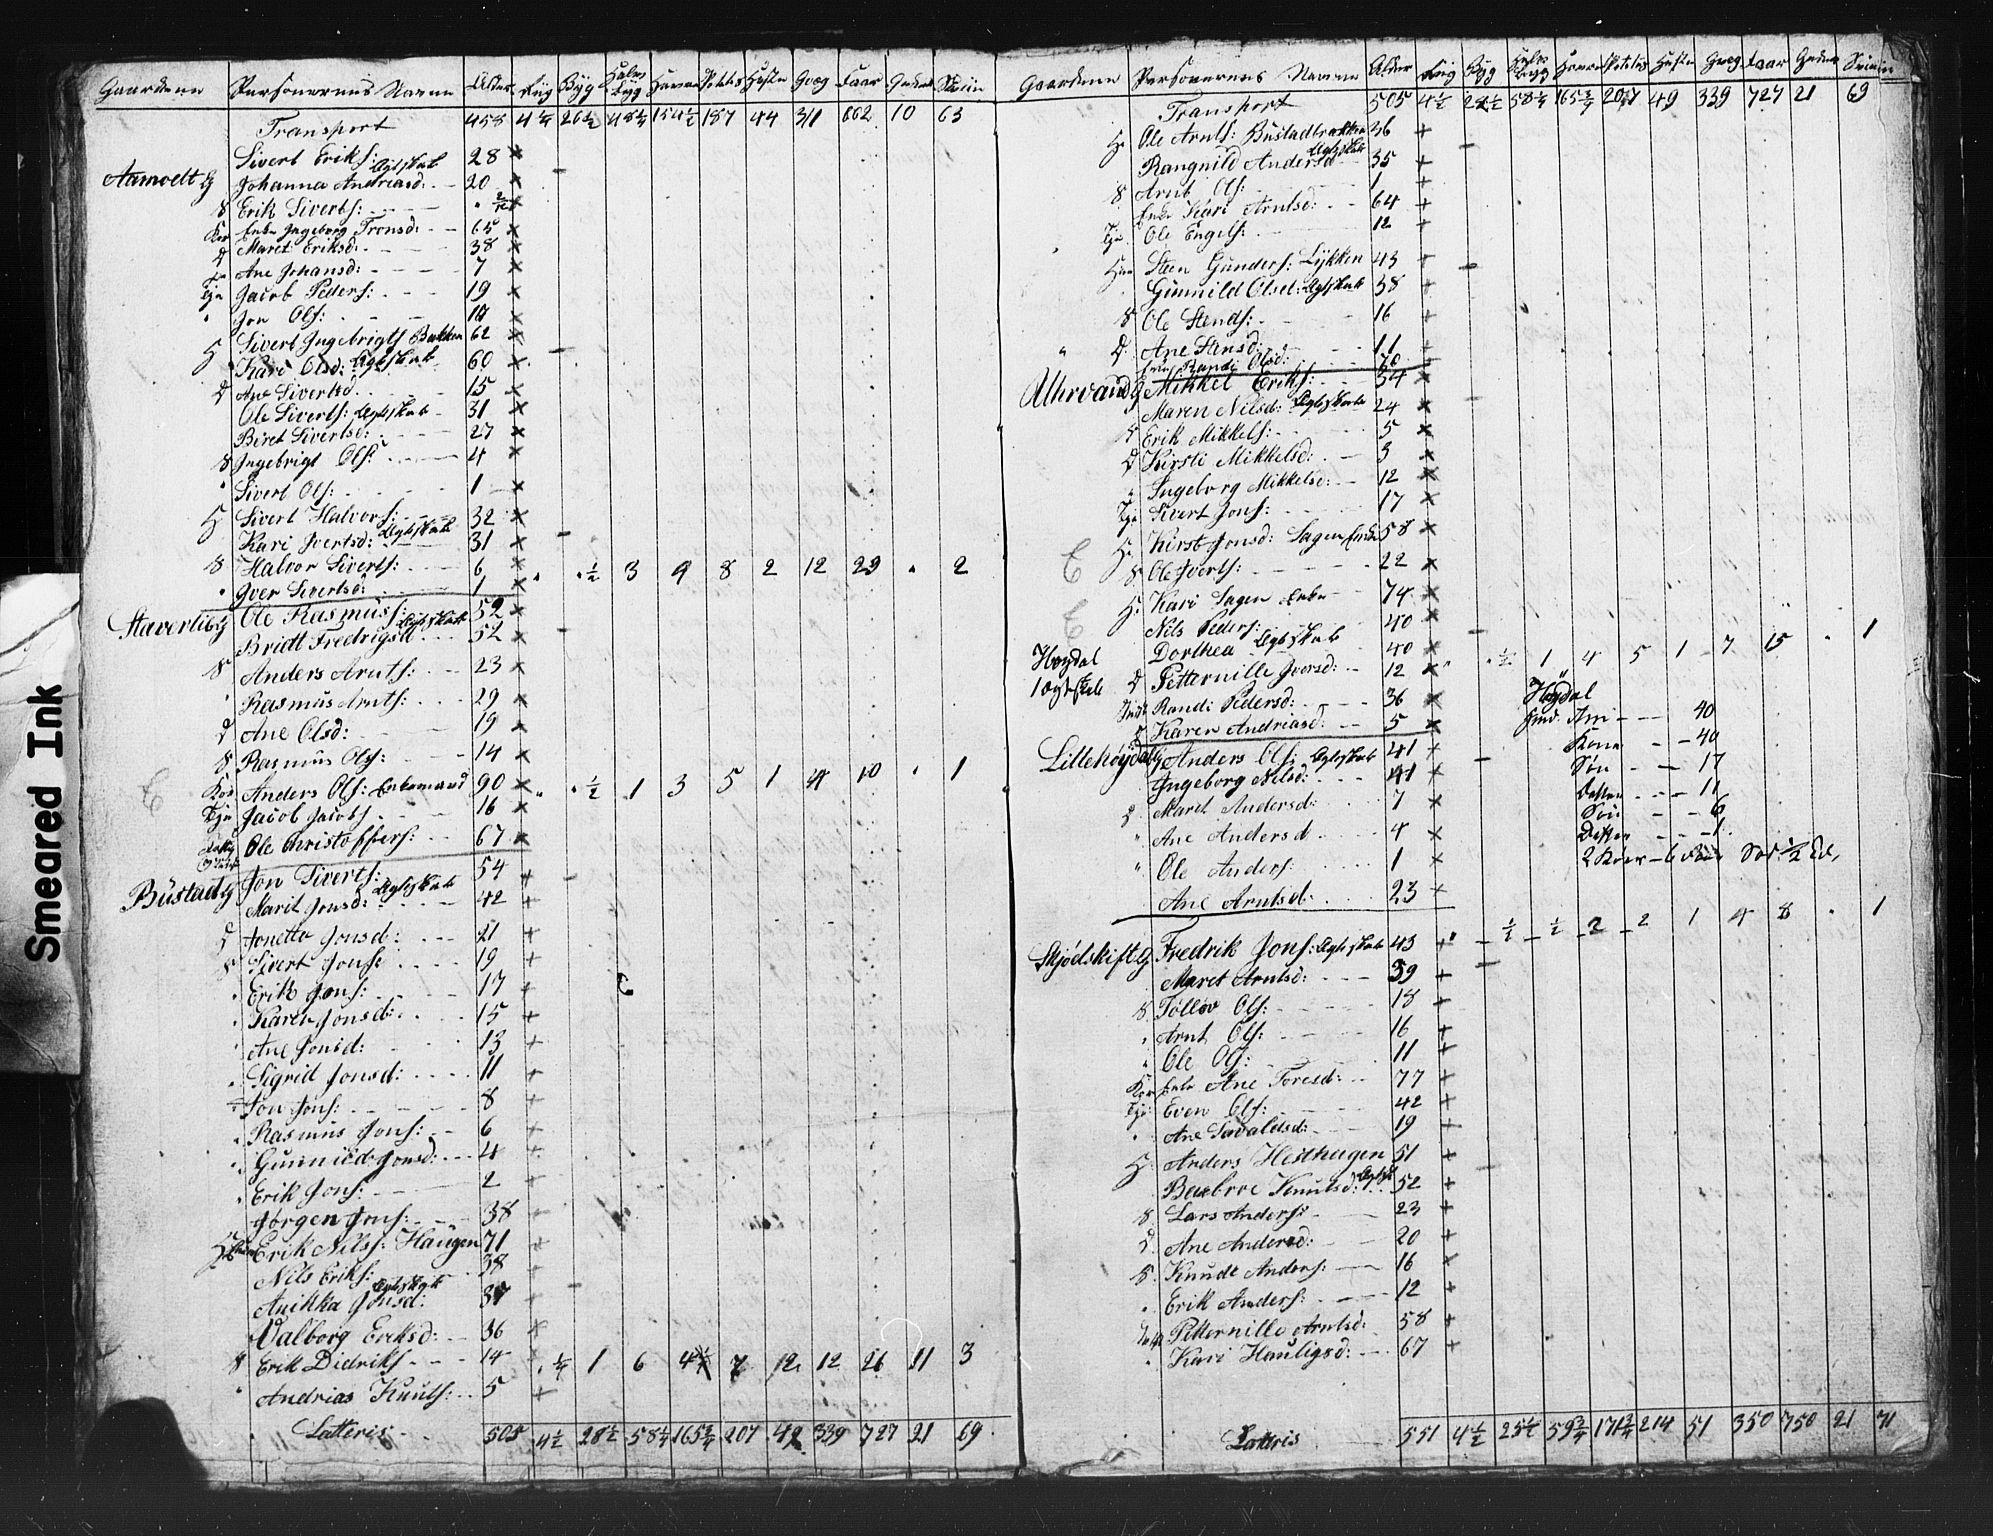 Gaardene Personernes Navne Alder Rug Byg Havre Potetes Heste Qvæg Faar Geder Sviin
Transport 458 4 1/4 26 1/2 48 1/4 154 1/2 187 44 311 662 10 63
Sivert Eriks: 28 x
Aamoelt G Johanna Andriasd: Ægteskab 20 x
S Erik Siverts: 2/12 x
Enke Ingeborg Tronsd: 65 x
D Maret Eriksd: 38 x
Ane Johansd: 7 x
Tje Jacob Peders: 19 x
" Jon Ols: x
H Sivert Ingebrigts Bakken 62 x
Kari Olsd: Ægteskab 60 x
D Ane Sivertsd 15 x
Ole Siverts: Ægteskab 31 x
Beret Sivertsd: 27 x
S Ingebrigt Ols: 4 x
" Sivert Ols: 1 x
H Sivert Halvors: 32 x
Kari Ivertsd: Ægteskab 31 x
S Halvor Siverts: 6 x " 1/2 3 9 8 2 12 29 " 2
" Iver Sivertsd: 1 x
Staverlie G Ole Rasmuss: 52 x
Bridt Fredrigsd Ægteskab 52 x
S Anders Arnts: 23 x
" Rasmus Arnts: 29 x
D Ane Olsd: 19 x
S Rasmus Ols: 14 x
Anders Ols: Enkemand 90 x " 1/2 1 3 5 1 4 10 " 1
Tje Jacob Jacobs 16 x
Ole Christoffers: 67 x
Bustad G Jon Siverts: 54 +
Marit Jonsd: Ægteskab 42 +
D Jonetta Jonsd: 21 +
S Sivert Jons: 19 +
" Erik Jons: 17 +
" Karen Jonsd: 15 +
" Ane Jonsd: 13 +
" Sigrid Jonsd: 11 +
" Jon Jons: 8 +
" Rasmus Jons: 6 +
" Gunnild Jonsd: 4 +
" Erik Jons: 2 +
Jørgen Jons: 38 +
Erik Nilss: Haugen 71 +
Nils Eriks: 38 +
Anikka Jonsd: Ægteskab 37 +
Valborg Eriksd: 36 +
S Erik Didriks 14 1/4 1 6 7 12 12 26 11 3
" Andrias Knuts: 5 +
Latteris 505 4 1/2 28 1/2 58 1/4 165 3/4 207 49 339 727 21 69
Gaardene Personernes Navne Alder Rug Byg Havre Potetes Heste Qvæg Faar Geder Sviin
Transport 505 4 1/2 58 1/4 165 3/4 207 49 339 727 21 69
H Ole Arnts: Bustadbakken 36 +
Rangnild Andersd Ægteskab 35 +
S Arnt Ols: 1 +
Enke Kari Arntsd: 64 +
Tje Ole Engels: 12 +
Steen Gunders: Løkken 43 +
Gunnild Olsd: Ægteskab 38 +
S Ole Stends: 16 +
" D Ane Stensd: 11 +
Enke Randi Olsd: 70
Uhrvand G Mikkel Eriks: 34 x
Maren Nilsd: Ægteskab 24 x
S Erik Mikkels: 5 x
D Kirsti Mikkelsd: 3 x
" Ingeborg Mikkelsd: 12 x
Tje Sivert Jons: 17 x
H Kirst Jonsd: Sagen Enke 58 x
S Ole Iverts: 22 x
H: Kari Sagen Enke 74 x
Nils Peders: 40 x
Høydal Dorthea Ægteskab 40 x
1 ægteskab D Petternille Iversd: 12 x " 1/2 1 4 5 1 7 15 " 1
Randi Pedersd: 36 x
Karen Andriasd: 5 x
Høydal
40
Kone 40
Søn 17
Datter 11
Søn 6
Datter 1
Lillehøydal G Anders Ols: Ægteskab 41 +
Ingeborg Nilsd: 41 x
D Maret Andersd: 7 x
" Ane Andersd 4 x
" Ole Anders: 1 x
Ane Arntsd. 23 +
Skjødskift G Fredrik Jons: Ægteskab 43 + " 1/2 1/2 2 2 1 4 8 " 1
Maret Arntsd: 39 +
S Tøllov Ols: 18 +
" Arnt Ols: 16 +
" Ole Ols: 11 +
Enke Ane Toresd: 77 +
Tje: Even Ols: 42 +
" Ane Savaldsd: 19 +
H: Anders Hesthagen 51 +
Barbroe Knutsd: 52 +
S Lars Anders: 23 +
D Ane Andersd: 20 +
S Knudt Anders: 16 x
" Erik Anders: 12 +
Petternille Arntsd: 58 +
" Kari Hauligsd: 67 +
Latteris 551 4 1/2 25 1/2 59 3/4 171 3/4 214 51 350 750 21 71
Smeared Ink